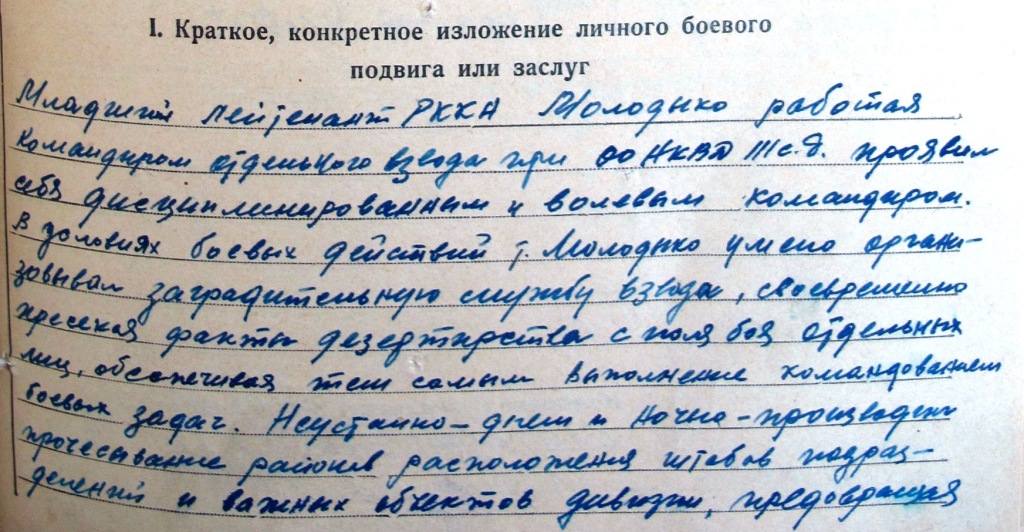 I. Краткое, конкретное изложение личного боевого
подвига или заслуг
Младший лейтенант РККА Молодыко работая
командиром отдельного взвода при ОО НКВД III с.д. проявил
себя дисциплинированным и волевым командиром.
В условиях боевых действий т. Молодыко умело органи-
зовывал заградительную службу взвода, своевременно
пресекая факты дезертирства с поля боя отдельных
лиц, обеспечивая тем самым выполнение командованием
боевых задач. Неустанно – днем и ночью – производил
прочесывание районов расположения штабов подраз-
делений и важных объектов дивизии, предовращая